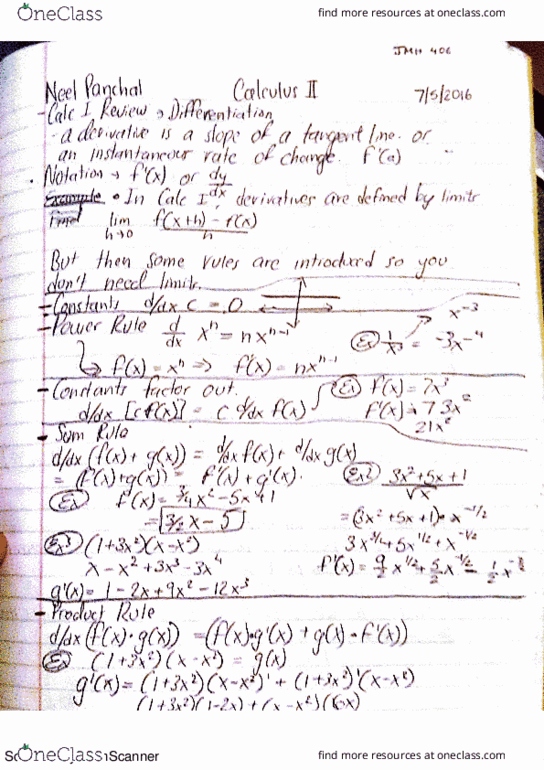 OneClass
find more resources at oneclass.com
JMH 406
Neel Panchal Calculus II 7/5/2016
- Calc I Review → Differentiation
- a derivative is a slope of a tangent line. or
an instantaneous rate of change. f'(a)
. Notation → f'(x) or dy/dx
Example • In Calc I derivatives are defined by limits
lim h→0 f(x+h) - f(x) / h
But then some rules are introduced so you
don't need limits.
- Constants d/dx c = 0
- Power Rule d/dx x^n = nx^(n-1) Ex 1/x³ x^-3 = -3x^-4
↳ f(x) = x^n ⇒ f'(x) = nx^(n-1)
- Constants factor out. Ex f(x) = 7x³
d/dx [c f(x)] = c d/dx f(x) f'(x) = 7·3x²
21x²
- Sum Rule
d/dx (f(x) + g(x)) = d/dx f(x) + d/dx g(x)
= (f(x)+g(x))' = f'(x) + g'(x). Ex2 3x²+5x+1 / √x
Ex f(x) = 3/4x² - 5x + 1
= 3/2 x - 5 = (3x² + 5x + 1) • x^-1/2
Ex3 (1+3x²)(x-x²) 3x^3/2 + 5x^1/2 + x^-1/2
x - x² + 3x³ - 3x⁴ f'(x) = 9/2 x^1/2 + 5/2 x^-1/2 - 1/2 x^-3/2
g'(x) = 1 - 2x + 9x² - 12x³
- Product Rule
d/dx (f(x)·g(x)) = (f(x)·g'(x) + g(x)·f'(x))
Ex (1+3x²)(x-x²) = g(x)
g'(x) = (1+3x²)(x-x²)' + (1+3x²)'(x-x²)
(1+3x²)(1-2x) + (x-x²)(6x)
OneClass
Scanner
find more resources at oneclass.com